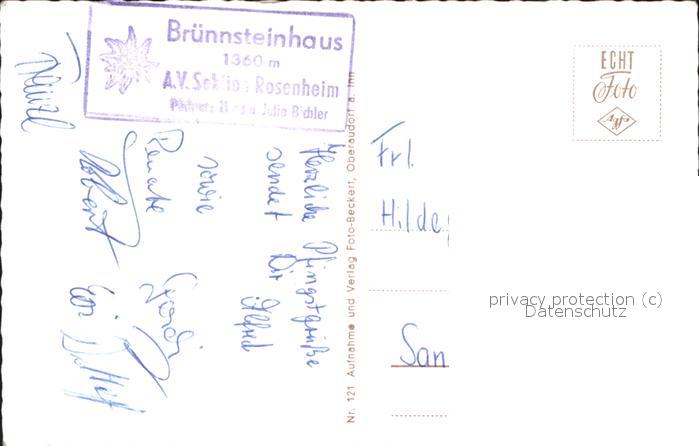 Brünnsteinhaus
1360 m
A.V. Sektion Rosenheim
Julie Bichler
Herzliche Pfingstgrüße
sendet Dir Alfred
sowie
Renate
Robert
Nr. 121 Aufnahme und Verlag Foto-Beckert, Oberaudorf a. Inn
ECHT
Foto
Agfa
Frl.
Hildeg
San
privacy protection (c)
Datenschutz